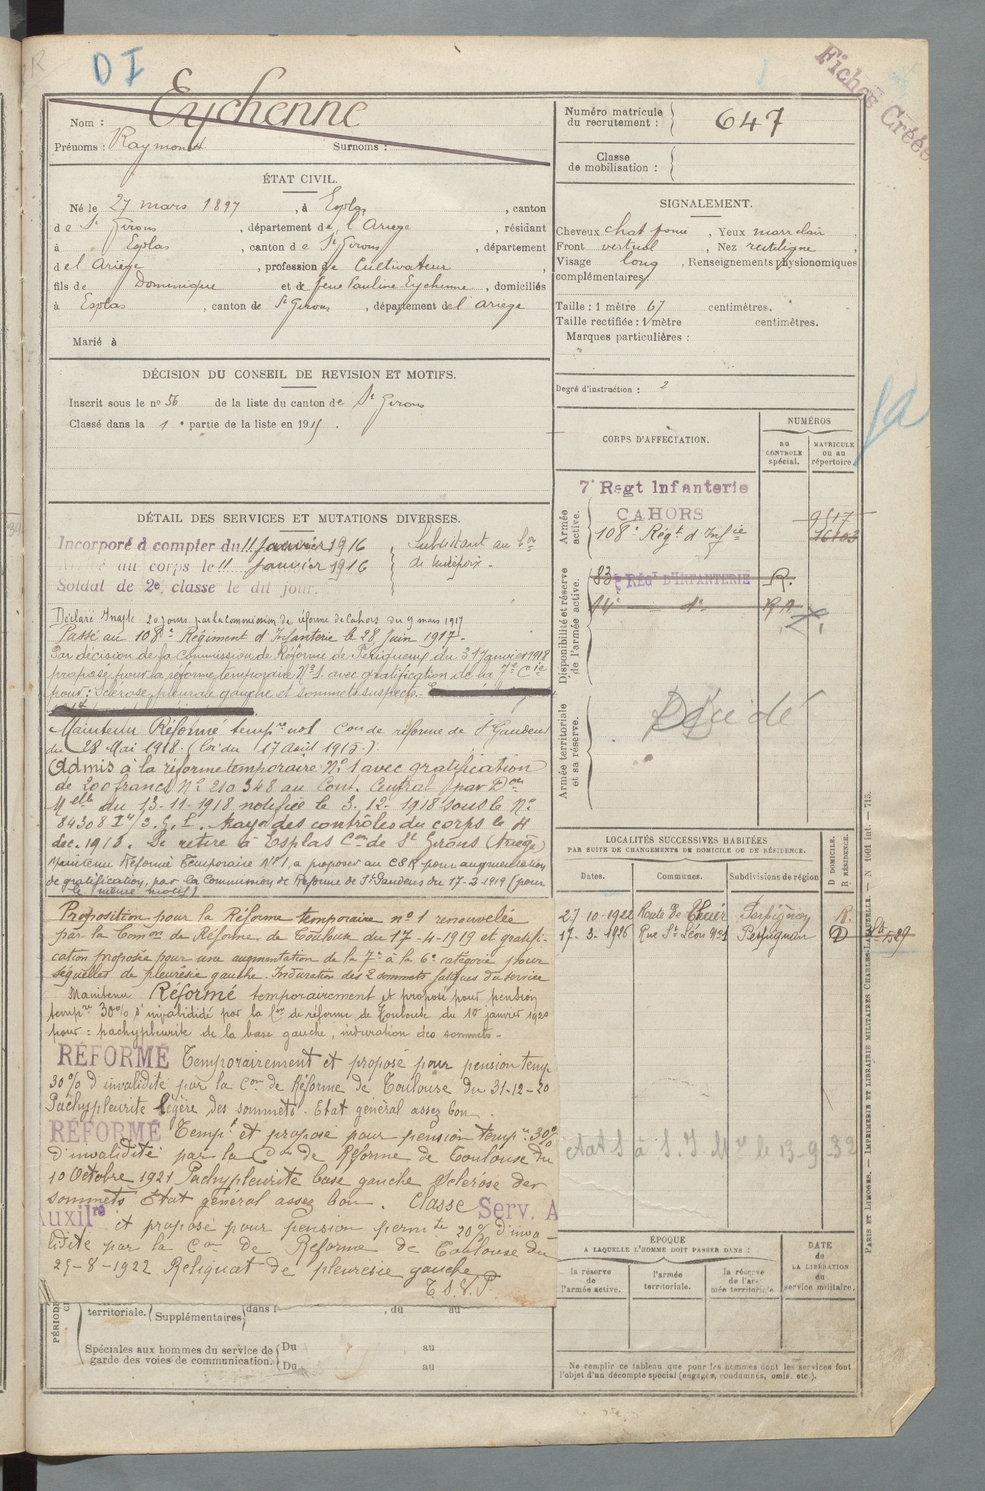 D I
Fiches Créées
Nom : Eychenne
Prénoms : Raymond Surnoms :
Numéro matricule du recrutement : 647
Classe de mobilisation :
ÉTAT CIVIL.
Né le 27 mars 1897, à Esplas, canton
de St Girons, département de l'Ariège, résidant
à Esplas, canton de St Girons, département
de l'Ariège, profession de Cultivateur
fils de Dominique et de feue Pauline Eychenne, domiciliés
à Esplas, canton de St Girons, département de l'Ariège
Marié à
SIGNALEMENT.
Cheveux chat foncé, Yeux marr clair,
Front vertical, Nez rectiligne,
Visage long, Renseignements physionomiques
complémentaires
Taille : 1 mètre 67 centimètres.
Taille rectifiée : 1 mètre centimètres.
Marques particulières :
Degré d'instruction : 2
DÉCISION DU CONSEIL DE REVISION ET MOTIFS.
Inscrit sous le no 56 de la liste du canton de St Girons
Classé dans la 1e partie de la liste en 191
DÉTAIL DES SERVICES ET MUTATIONS DIVERSES.
Incorporé à compter du 11 Janvier 1916
au corps le 11 Janvier 1916
Soldat de 2e classe le dit jour.
Subsistant au
Déclaré Inapte 20 jours par la Commission de réforme de Cahors du 9 mars 1917
Passé au 108e Régiment d'Infanterie le 28 Juin 1917.
Par décision de la Commission de Réforme de Périgueux du 31 Janvier 1918
proposé pour la réforme temporaire No 1 avec gratification de la 7e Cie
pour : Sclérose pleurale gauche et sommets suspects.
Maintenu Réformé tempre no 1 Con de réforme de St Gaudens
du 28 Mai 1918. (Loi du 17 Août 1915.)
Admis à la réforme temporaire No 1 avec gratification
de 200 francs No 210348 au Cont. Central par Don
Melle du 13-11-1918 notifiée le 3-12-1918 sous le No
Rayé des contrôles du corps le 4
déc. 1918. Se retire à Esplas Con de St Girons (Ariège)
Maintenu Réformé Temporaire No 1, à proposer au CSR pour augmentation
de gratification, par la Commission de Réforme de St Gaudens du 17-2-1919 (pour
le même motif)
Proposition pour la Réforme temporaire no 1 renouvelée
par la Comon de Réforme de Toulouse du 17-4-1919 et gratifi-
cation proposée pour une augmentation de la 7e à la 6e catégorie pour
séquelles de pleurésie gauche. Induration des 2 sommets fatigues du service
Maintenu Réformé temporairement et proposé pour pension
tempre 30% d'invalidité par la Con de réforme de Toulouse du 10 janvier 1920
pour : pachypleurite de la base gauche, induration des sommets-
RÉFORMÉ Temporairement et proposé pour pension temp
30% d'invalidité par la Con de Réforme de Toulouse du 31-12-20
Pachypleurite légère des sommets. Etat général assez bon.
RÉFORMÉ Tempt et proposé pour pension tempre 30%
d'invalidité par la Con de Réforme de Toulouse du
10 Octobre 1921 Pachypleurite base gauche Sclérose des
sommets Etat général assez bon. Classé Serv. A
uxilre et proposé pour pension permte 20% d'inva-
lidité par la Con de Réforme de Toulouse du
25-8-1922 Reliquat de pleurésie gauche
T.S.V.P.
CORPS D'AFFECTATION.
NUMÉROS
AU CONTROLE spécial.
MATRICULE ou au répertoire.
Armée active.
7e Regt Infanterie
CAHORS
108e Régt d'Infie
9517
Disponibilité et réserve de l'armée active.
83e RÉGt D'INFANTERIE R.
14e — de — R A
Armée territoriale et sa réserve.
Décédé
LOCALITÉS SUCCESSIVES HABITÉES
PAR SUITE DE CHANGEMENTS DE DOMICILE OU DE RÉSIDENCE.
Dates. Communes. Subdivisions de région D DOMICILE. R RÉSIDENCE.
27-10-1922 Route de Thuir Perpignan R.
17-3-1926 Rue St Léon No 1 Perpignan D
le 13-9-32
ÉPOQUE
A LAQUELLE L'HOMME DOIT PASSER DANS :
la réserve de l'armée active.
l'armée territoriale.
la réserve de l'armée territoriale.
DATE de LA LIBÉRATION du service militaire.
Ne remplir ce tableau que pour les hommes dont les services font
l'objet d'un décompte spécial (engagés, condamnés, omis, etc.).
territoriale. Supplémentaires dans l , du au
Spéciales aux hommes du service de garde des voies de communication.
Du au
Du au
PARIS ET LIMOGES. — IMPRIMERIE ET LIBRAIRIE MILITAIRES CHARLES-LAVAUZELLE. — N 1001 int. — 715.